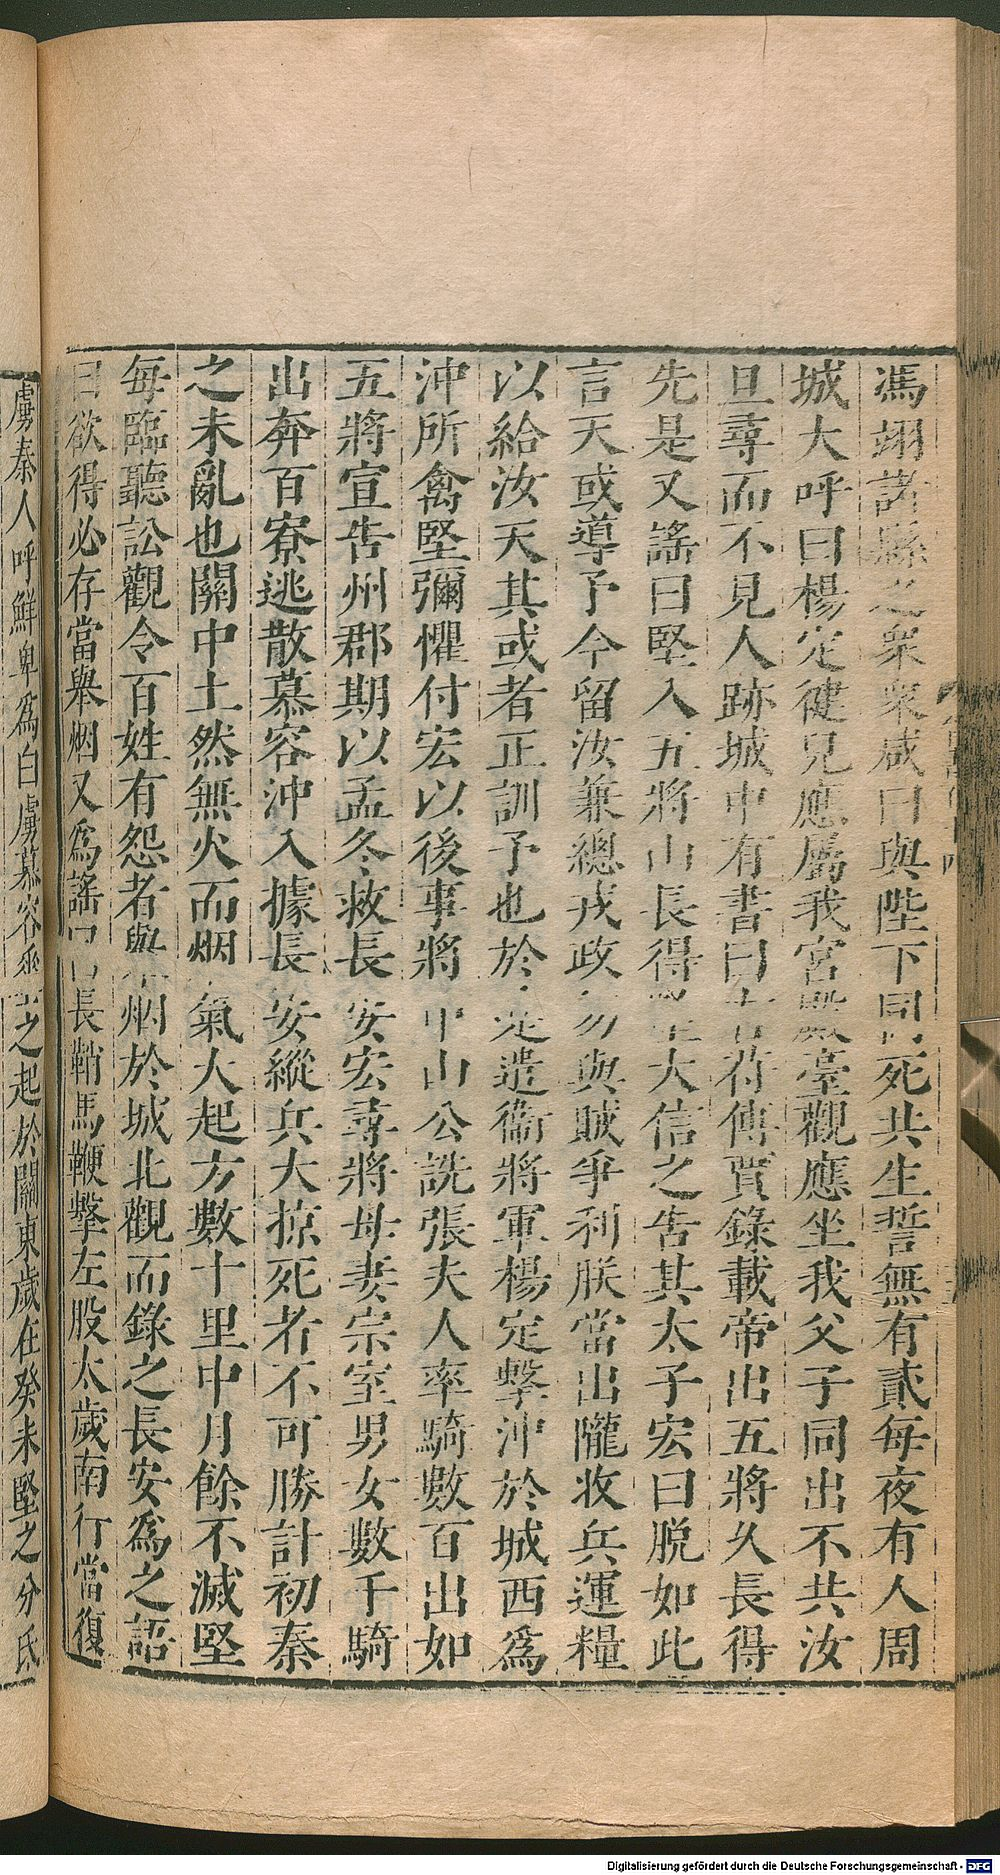 馮翊諸縣之衆衆咸曰與陛下同死共生誓無有貳每夜有人周
城大呼曰楊定健兒應屬我宮殿臺觀應坐我父子同出不共汝
旦尋而不見人跡城中有書曰古符傳賈錄載帝出五將久長得
先是又謠曰堅入五將山長得堅大信之告其太子宏曰脫如此
言天或導予今留汝兼總戎政勿與賊爭利朕當出隴收兵運糧
以給汝天其或者正訓予也於是遣衞將軍楊定擊沖於城西爲
沖所禽堅彌懼付宏以後事將中山公詵張夫人率騎數百出如
五將宣告州郡期以孟冬救長安宏尋將母妻宗室男女數千騎
出奔百寮逃散慕容沖入據長安縱兵大掠死者不可勝計初秦
之未亂也關中土然無火而烟氣大起方數十里中月餘不滅堅
每臨聽訟觀令百姓有怨者舉烟於城北觀而錄之長安爲之語
曰欲得必存當舉烟又爲謠曰長鞘馬鞭擊左股太歲南行當復
虜秦人呼鮮卑爲白虜慕容垂之起於關東歲在癸未堅之分氐
Digitalisierung gefördert durch die Deutsche Forschungsgemeinschaft - DFG